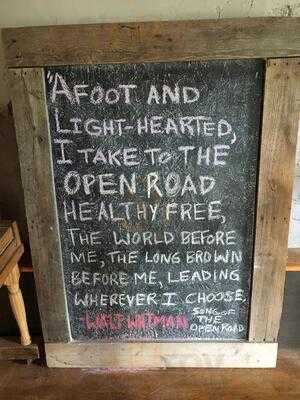 "AFOOT AND
LIGHT-HEARTED,
I TAKE TO THE
OPEN ROAD
HEALTHY FREE,
THE WORLD BEFORE
ME, THE LONG BROWN
BEFORE ME, LEADING
WHEREVER I CHOOSE.
-WALT WHITMAN
SONG OF
THE
OPEN ROAD